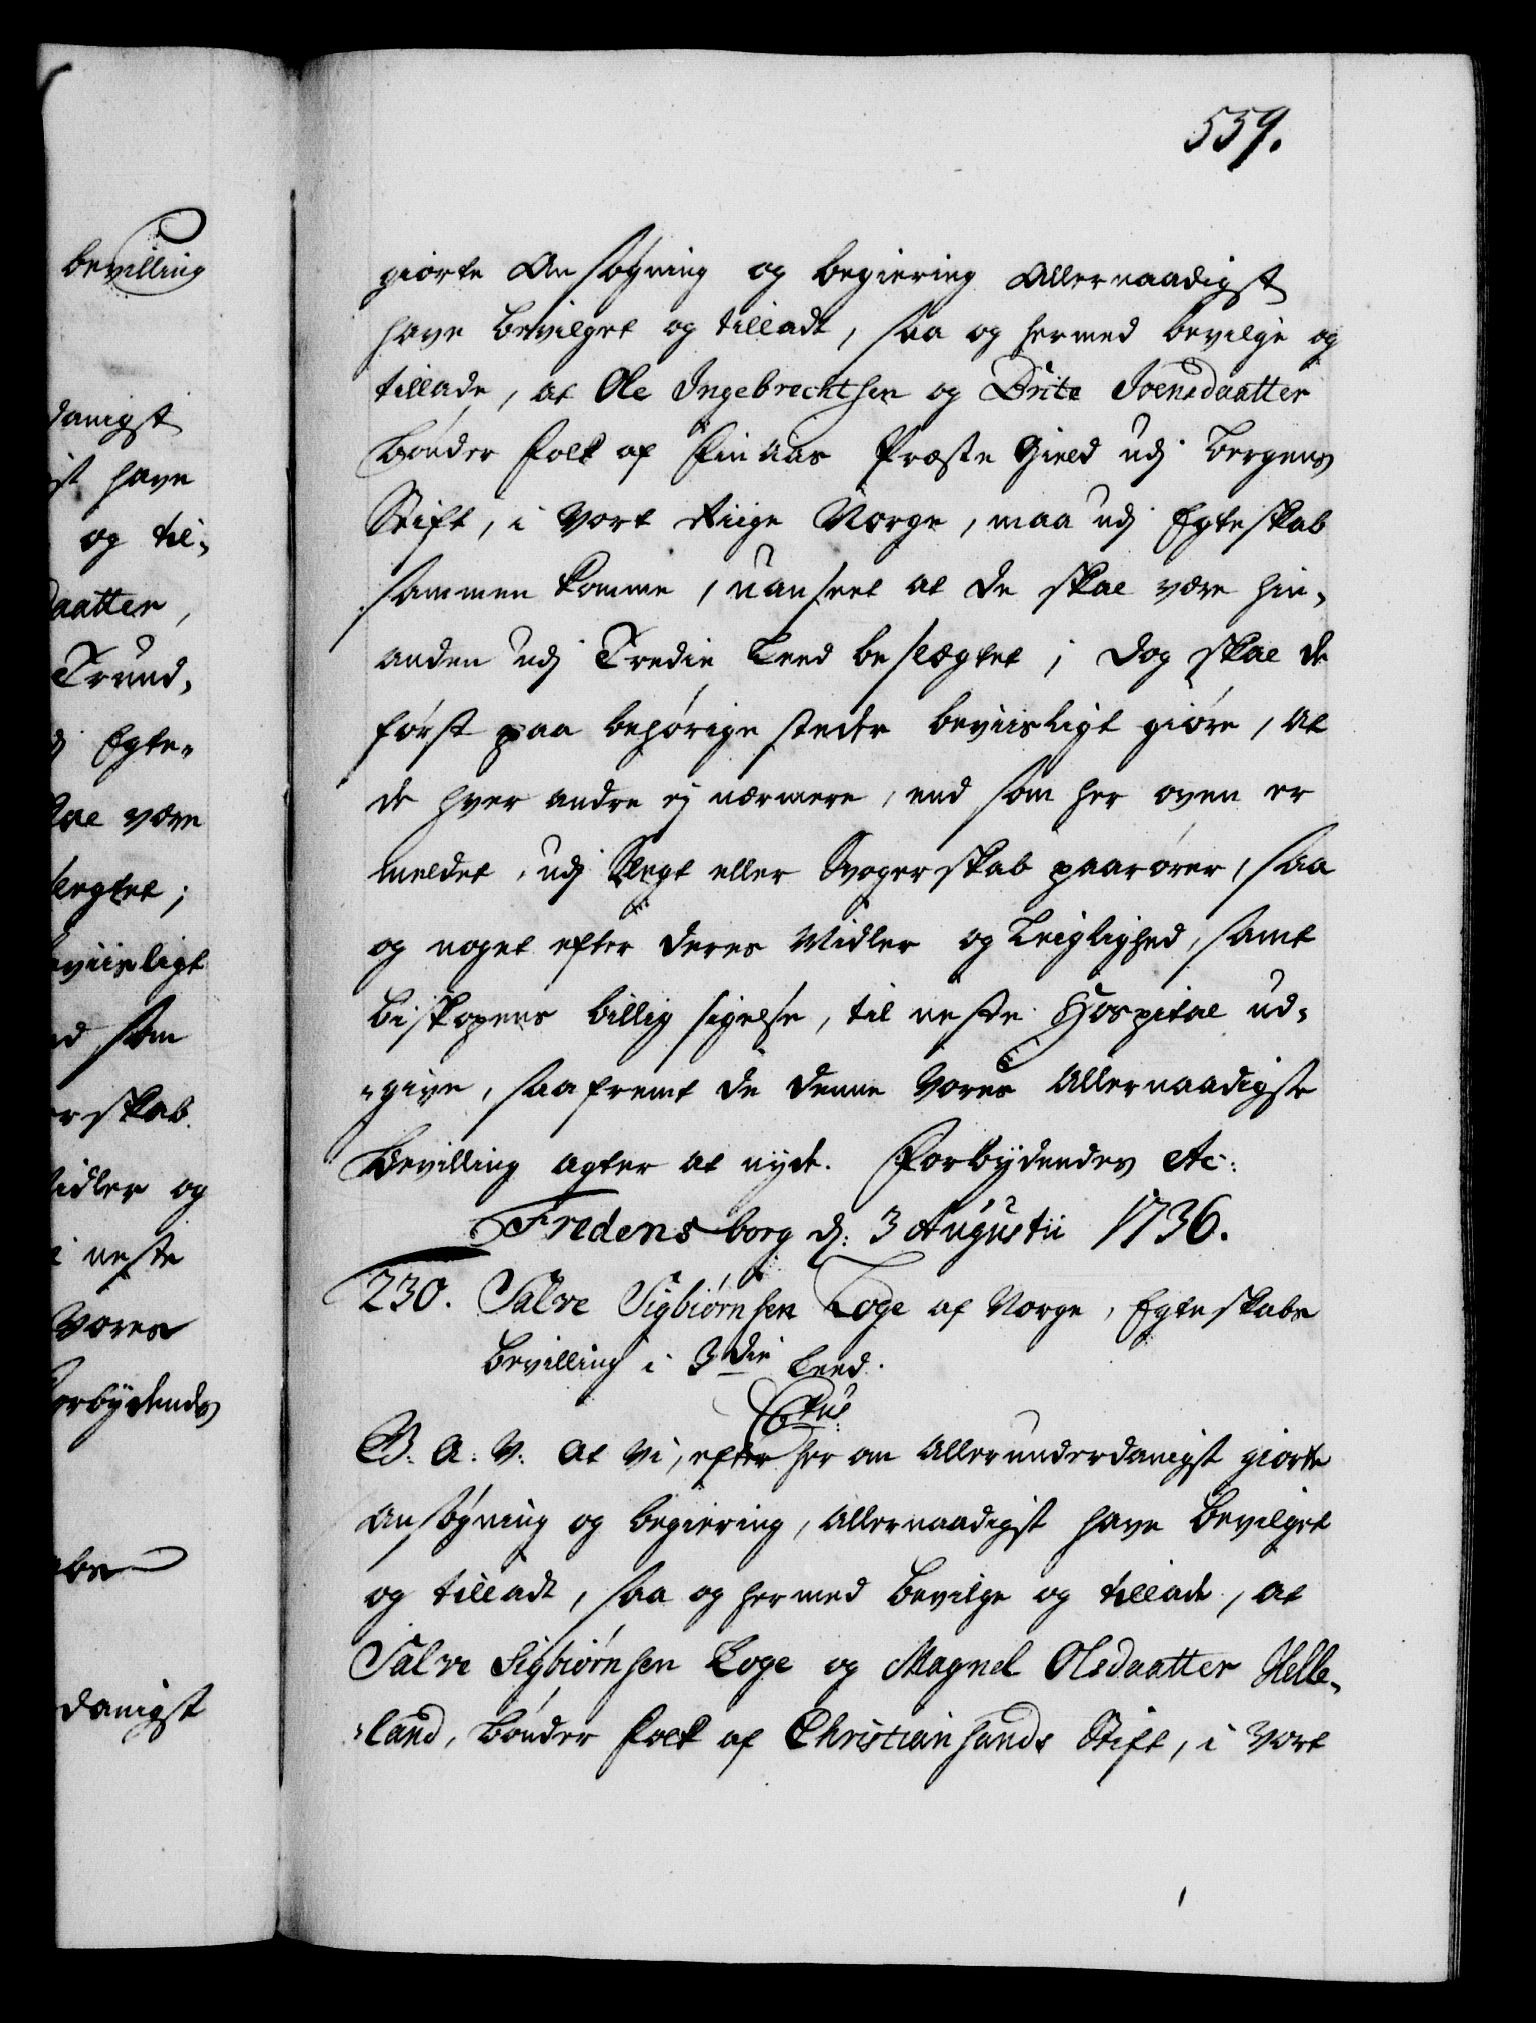 559.
bevilling
danigst
st have
og til-
daatter,
Trund-
j Egte-
kal være
slegtet;
eviisligt
nd som
erskab
Midler og
l neste
Vores
forbydendes
abs
danigst
giorte Ansøgning og begiering Allernaadigst
have bevilget og tilladt, saa og hermed bevilge og
tillade, at Ole Ingebrechtsen og Brite Joensdaatter
bønder folk af Finaas Præste Gield udj Bergens
Stift, i Vort Riige Norge, maa udj Egteskab
sammen komme, uanseet at de skal være hin-
anden udj Tredie Leed beslægtet; dog skal de
først paa behørige steder beviisligt giøre, at
de hver andre ej nærmere, end som her oven er
meldet, udj Slegt eller Svogerskab paarører, saa
og noget efter deres Midler og Leiglighed, samt
Biskopens billig sigelse, til neste Hospital ud-
-give, saafremt de denne Vores Allernaadigste
Bevilling agter at nyde. Forbydendes etc:
Fredensborg d: 3 Augustii 1736.
230. Salve Sigbiørnsen Loge af Norge, Egteskabs
bevilling i 3die Leed.
G. A: V: At Vi, efter her om Allerunderdanigst giorte
Ansøgning og begiering, Allernaadigst have bevilget
og tilladt, saa og hermed bevilge og tillade, at
Salve Sigbiørnsen Loge og Magnel Olsdaatter Helle-
-land, bønder folk af Christiansands Stift, i Vort